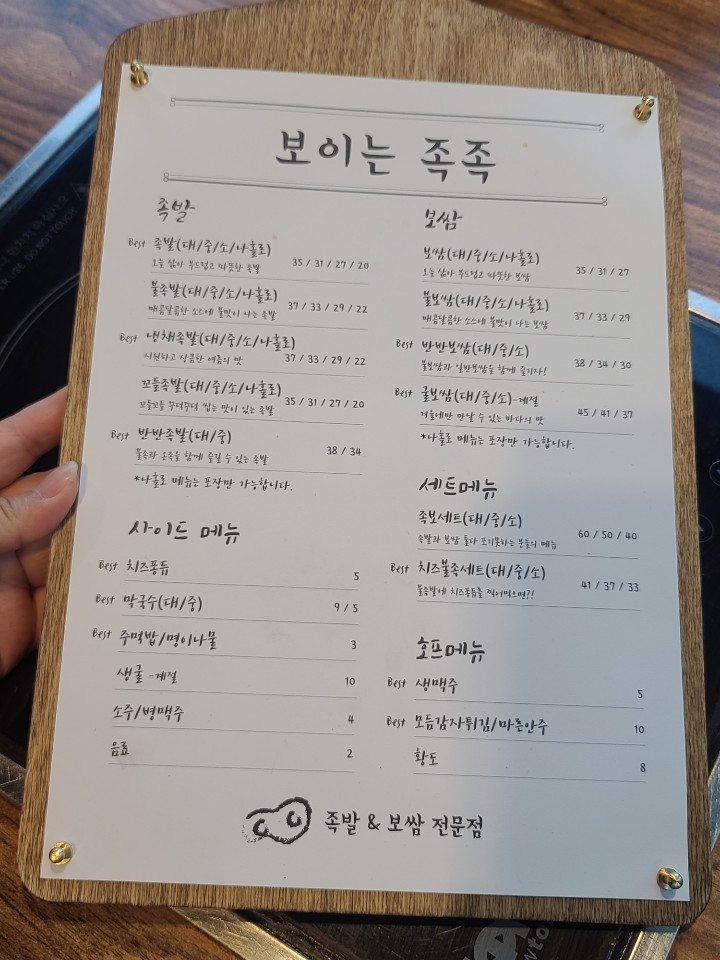 보이는 족족
족발
Best 족발(대/중/소/나홀로)
오늘 삶아 부드럽고 따뜻한 족발 35 / 31 / 27 / 20
불족발(대/중/소/나홀로)
매콤달콤한 소스에 불맛이 나는 족발 37 / 33 / 29 / 22
Best 냉채족발(대/중/소/나홀로)
시원하고 상큼한 여름의 맛 37 / 33 / 29 / 22
꼬들족발(대/중/소/나홀로)
꼬들꼬들 꾸덕꾸덕 씹는 맛이 있는 족발 35 / 31 / 27 / 20
Best 반반족발(대/중)
불족과 온족을 함께 즐길 수 있는 족발 38 / 34
*나홀로 메뉴는 포장만 가능합니다.
사이드 메뉴
Best 치즈퐁듀 5
Best 막국수(대/중) 9 / 5
Best 주먹밥/명이나물 3
생굴 -계절 10
소주/병맥주 4
음료 2
보쌈
보쌈(대/중/소/나홀로)
오늘 삶아 부드럽고 따뜻한 보쌈 35 / 31 / 27
불보쌈(대/중/소/나홀로)
매콤달콤한 소스에 불맛이 나는 보쌈 37 / 33 / 29
Best 반반보쌈(대/중/소)
불보쌈과 일반보쌈을 함께 즐기자! 38 / 34 / 30
Best 굴보쌈(대/중/소)-계절
겨울에만 만날 수 있는 바다의 맛 45 / 41 / 37
*나홀로 메뉴는 포장만 가능합니다.
세트메뉴
족보세트(대/중/소)
족발과 보쌈 둘다 포기못하는 분들의 메뉴 60 / 50 / 40
Best 치즈불족세트(대/중/소)
불족발에 치즈퐁듀를 찍어먹으면?! 41 / 37 / 33
호프메뉴
Best 생맥주 5
Best 모듬감자튀김/마른안주 10
황도 8
족발 & 보쌈 전문점